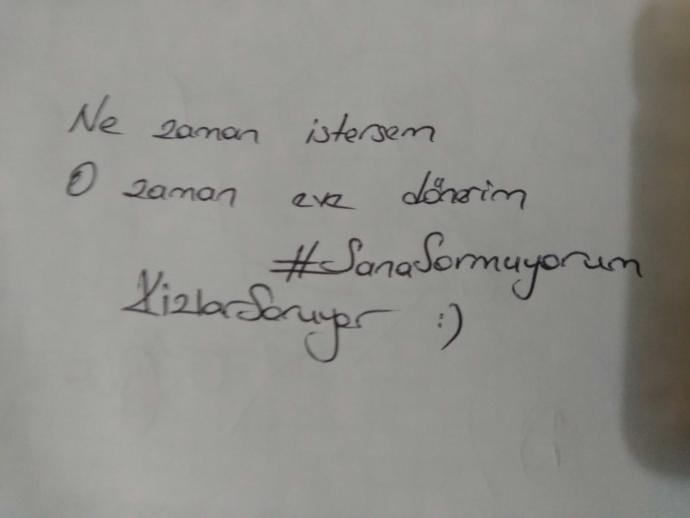 Ne zaman istersem
O zaman eve dönerim
#SanaSormuyorum
KizlarSoruyor :)